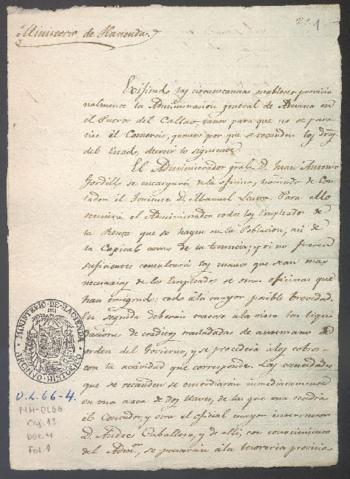 Ministerio de Hacienda.
1
Exigiendo las circunstancias establecer provisio
nalmente la Administracion general de Aduana en
el Puerto del Callao, tanto para que no se para
lice el Comercio, quanto por que se recauden los dros
del Estado, decreto lo siguiente
El Administrador gral. D. Juan Antonio
Gordillo se encargará de la oficina, haciendo de Con
tador el D. Manuel Para ello
reunirá el Administrador todos los Empleados de
la Renta que se hayen en la Poblacion, asi de
la Capital como de la y si no fueren
suficientes consultará los manos que sean mas
necesarias de los Empleados de otras oficinas que
han emigrado; todo a la mayor posible brevedad.
En segunda deberán traerse a la vista las liqui
daciones de creditos trasladadas de antemano de
orden del Gobierno, y se procederá a los cobros
con la actividad que corresponde. Las cantidades
que se recauden se encerrarán inmediatamente
en una arca de dos llaves, de las que una tendrá
el Contador, y otra el oficial mayor interventor
D. Andres Caballero, y de alli, con conocimiento
del Admor., se pasarán a la tesoreria
MINISTERIO DE HACIENDA
ARCHIVO HISTORICO
O.L. 66-4.
MH-OL66
Caj. 13
Doc. 4
Fol. 1